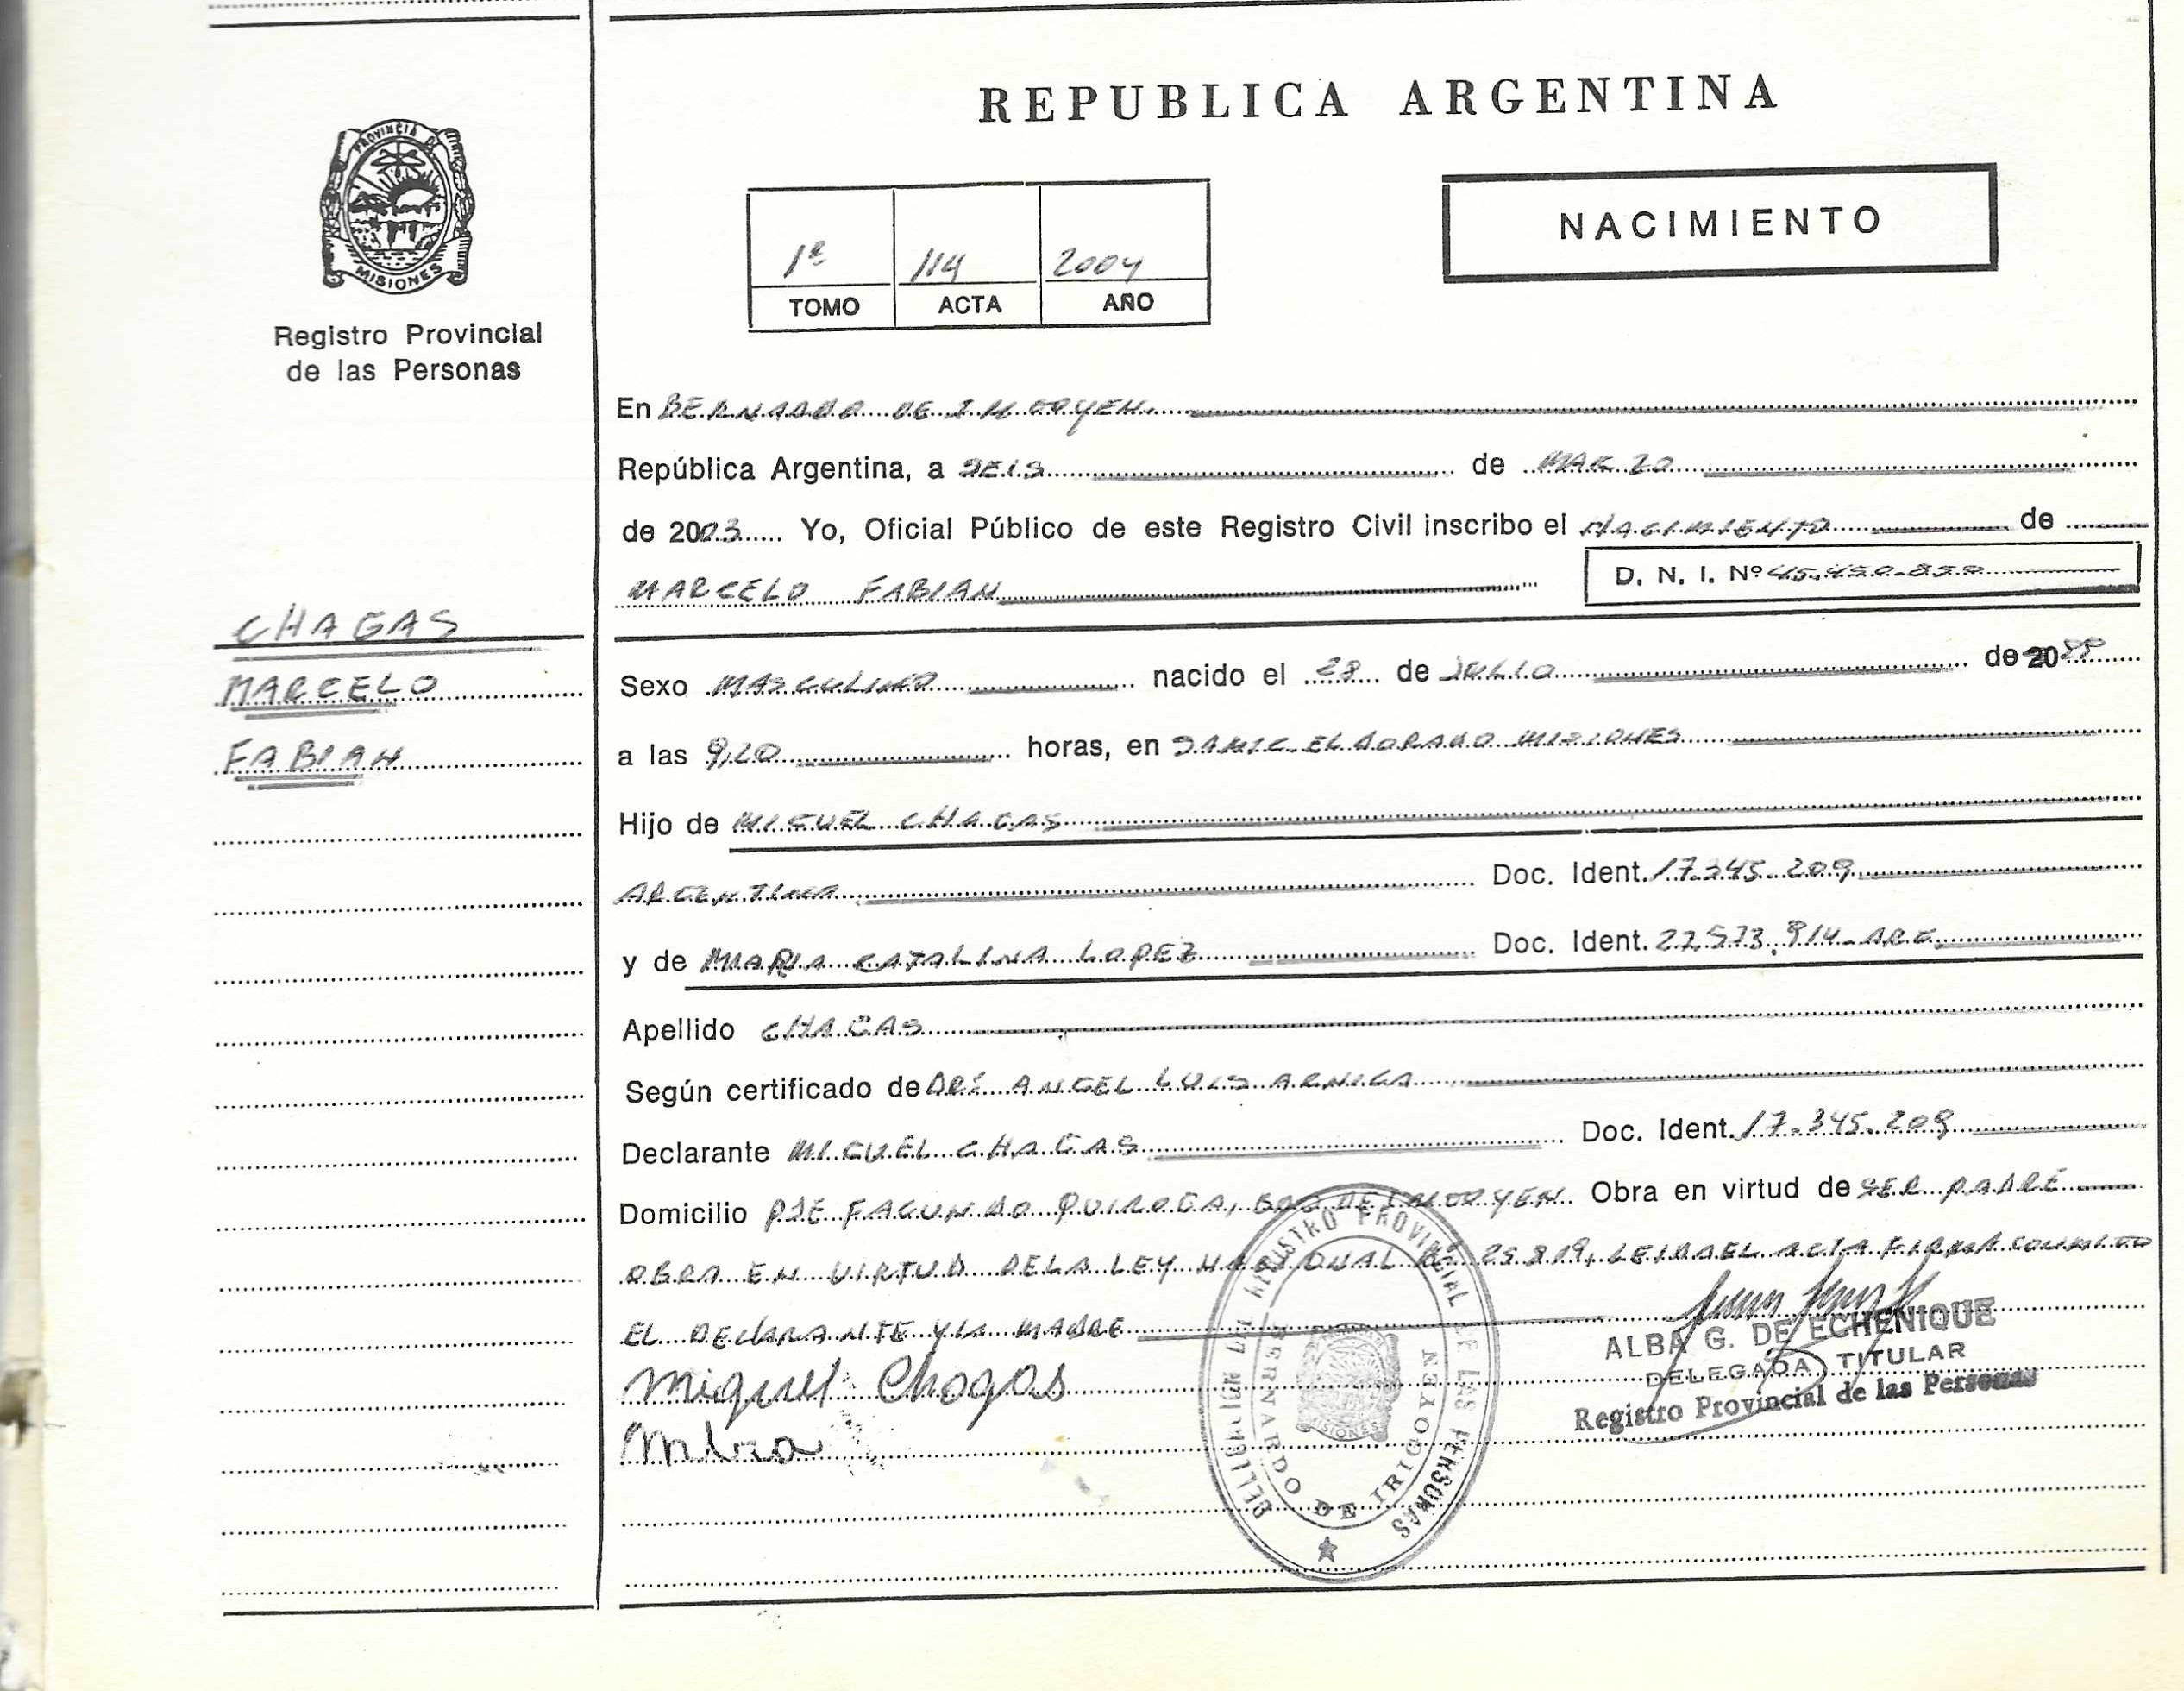 REPUBLICA ARGENTINA
PROVINCIA DE
MISIONES
Registro Provincial
de las Personas
NACIMIENTO
1º 114 2004
TOMO ACTA AÑO
En BERNARDO DE IRIGOYEN
República Argentina, a SEIS de MARZO
de 2003 Yo, Oficial Público de este Registro Civil inscribo el NACIMIENTO de
MARCELO FABIAN D. N. I. Nº 45.450.850
CHAGAS
MARCELO
FABIAN
Sexo MASCULINO nacido el 28 de JULIO de 20
a las 9,20 horas, en SAMIC ELDORADO MISIONES
Hijo de MIGUEL CHAGAS
ARGENTINA Doc. Ident. 17.345.209
y de MARIA CATALINA LOPEZ Doc. Ident. 27.573.914 - ARG.
Apellido CHAGAS
Según certificado de DR: ANGEL LUIS ARNICA
Declarante MIGUEL CHAGAS Doc. Ident. 17.345.209
Domicilio PJE FACUNDO QUIROGA, BDO DE IRIGOYEN Obra en virtud de SER PADRE
OBRA EN VIRTUD DE LA LEY NACIONAL Nº 25.819, LEIDA EL ACTA FIRMA CONMIGO
EL DECLARANTE Y LA MADRE
Miguel Chagas
ALBA G. DE ECHENIQUE
DELEGADA TITULAR
Registro Provincial de las Personas
REGISTRO PROVINCIAL DE LAS PERSONAS
BERNARDO DE IRIGOYEN
MISIONES